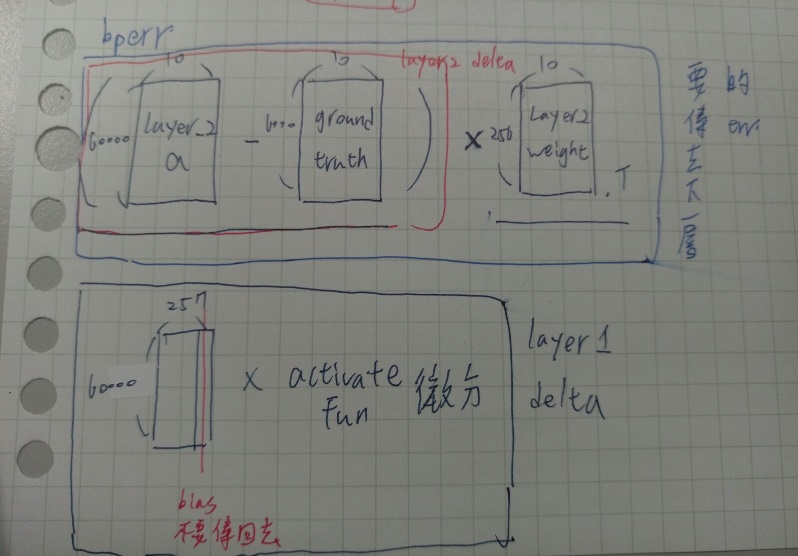 bperr
10
10
layer2 delta
10
60000
layer_2
a
-
6000
ground
truth
x
256
Layer2
weight
.T
要的
傳err.
去
下
層
257
60000
x
activate
Fun
微分
layer1
delta
bias
不要傳回去